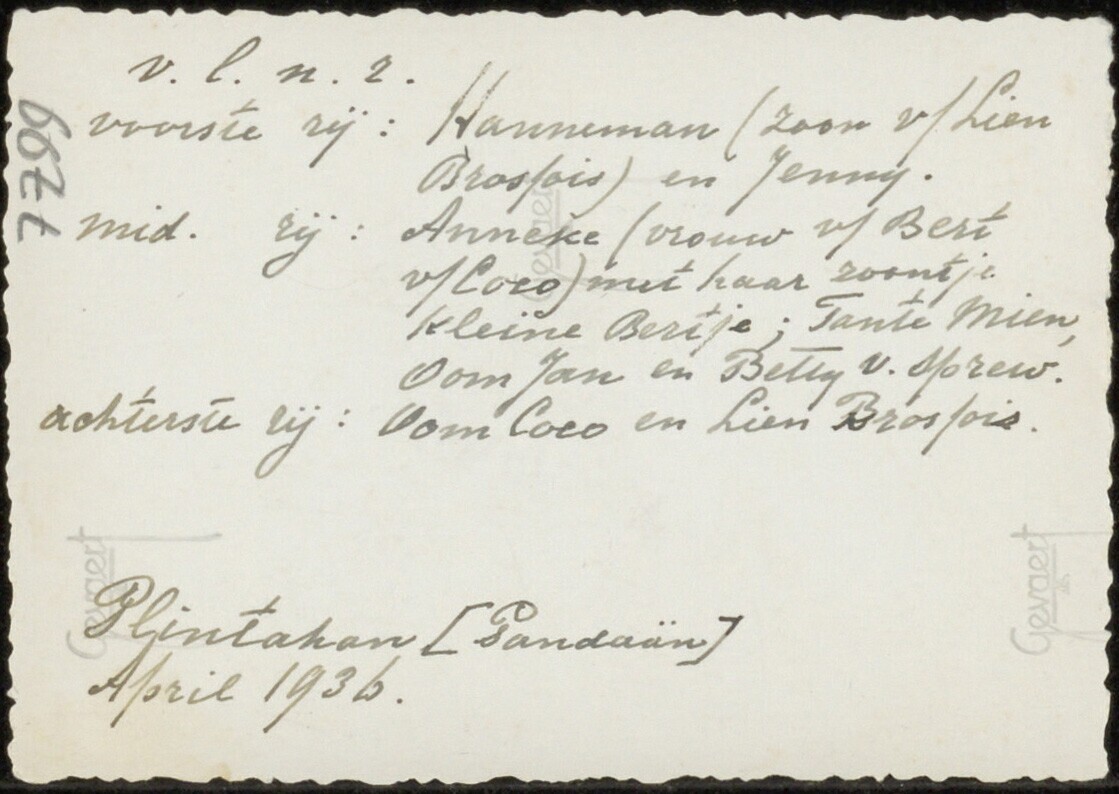 v. l. n. r.
voorste rij: Hanneman (zoon v/Lien
Brosfois) en Jenny.
mid. rij: Anneke (vrouw v/ Bert
v/Coco) met haar zoontje
Kleine Bertje; Tante Mien,
Oom Jan en Betty v. Sprew.
achterste rij: Oom Coco en Lien Brosfois.
Plintahan [Pandaän]
April 1936.
7299
Gevaert
Gevaert
Gevaert